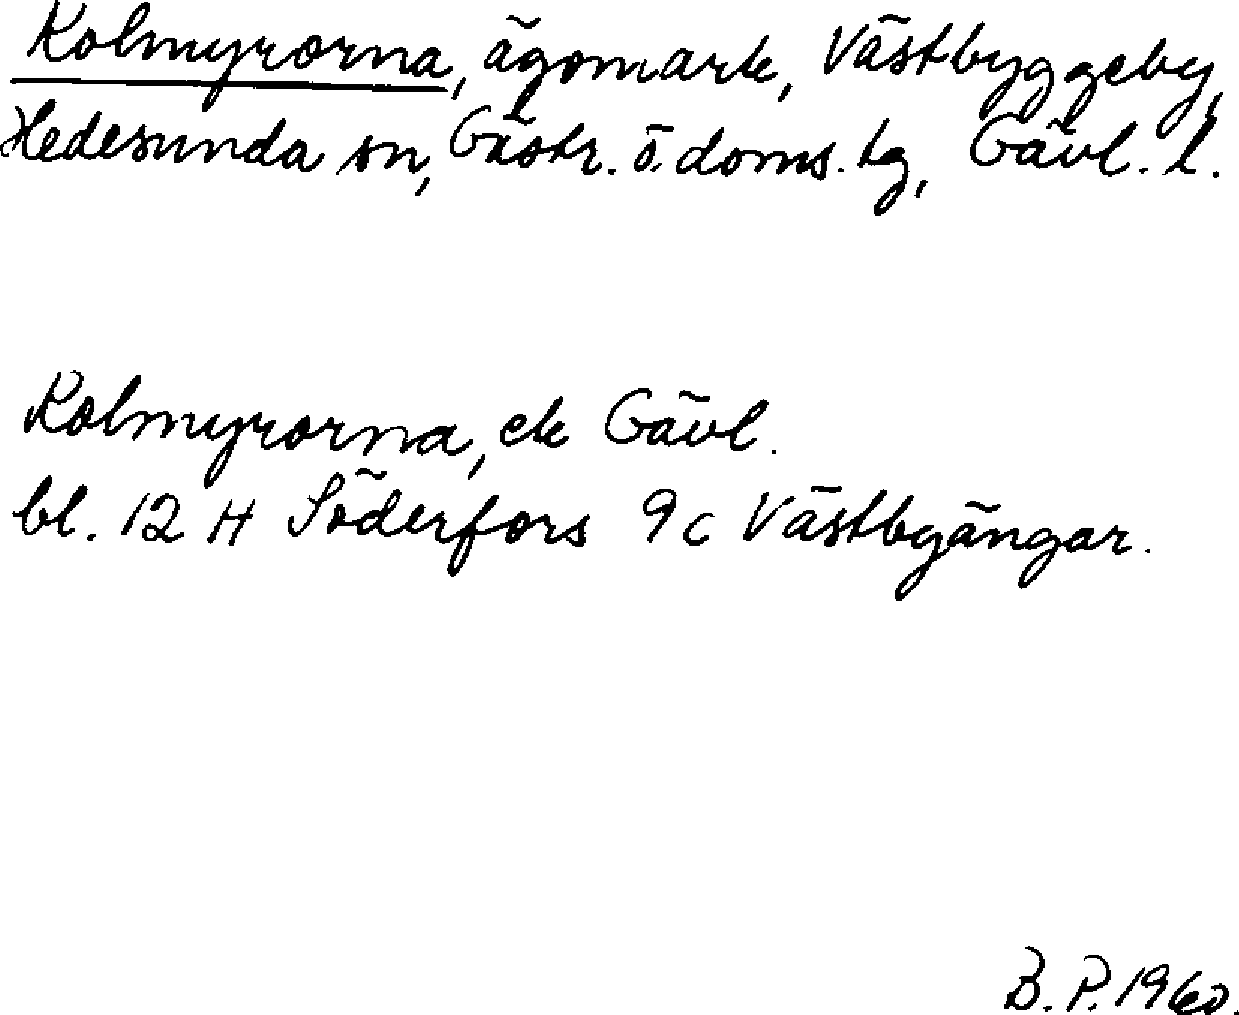 Kolmyrorna, ägomark, Västbyggeby,
Hedesunda sn, Gästr. ö. doms. tg, Gävl. l.
Kolmyrorna, ek Gävl.
bl. 12 H Söderfors 9 c Västbgängar.
B. P. 1960.